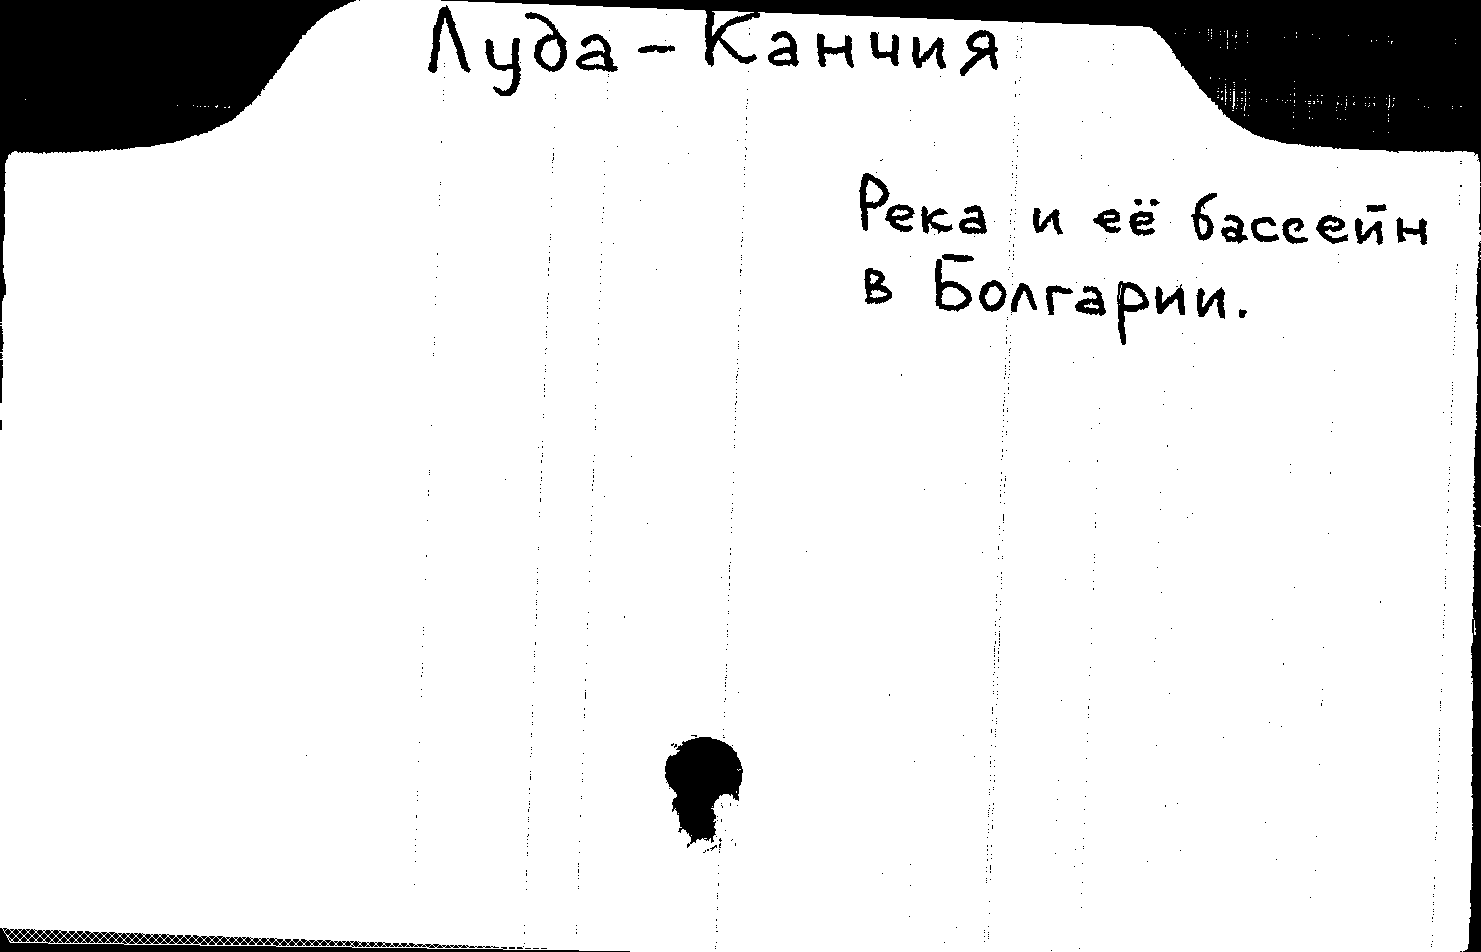 Луда-Канчия
Река и её бассейн
в Болгарии.